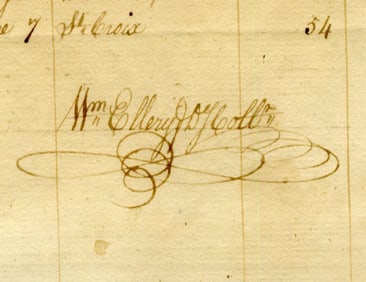 7 St. Croix 54
Wm Ellery D Collr